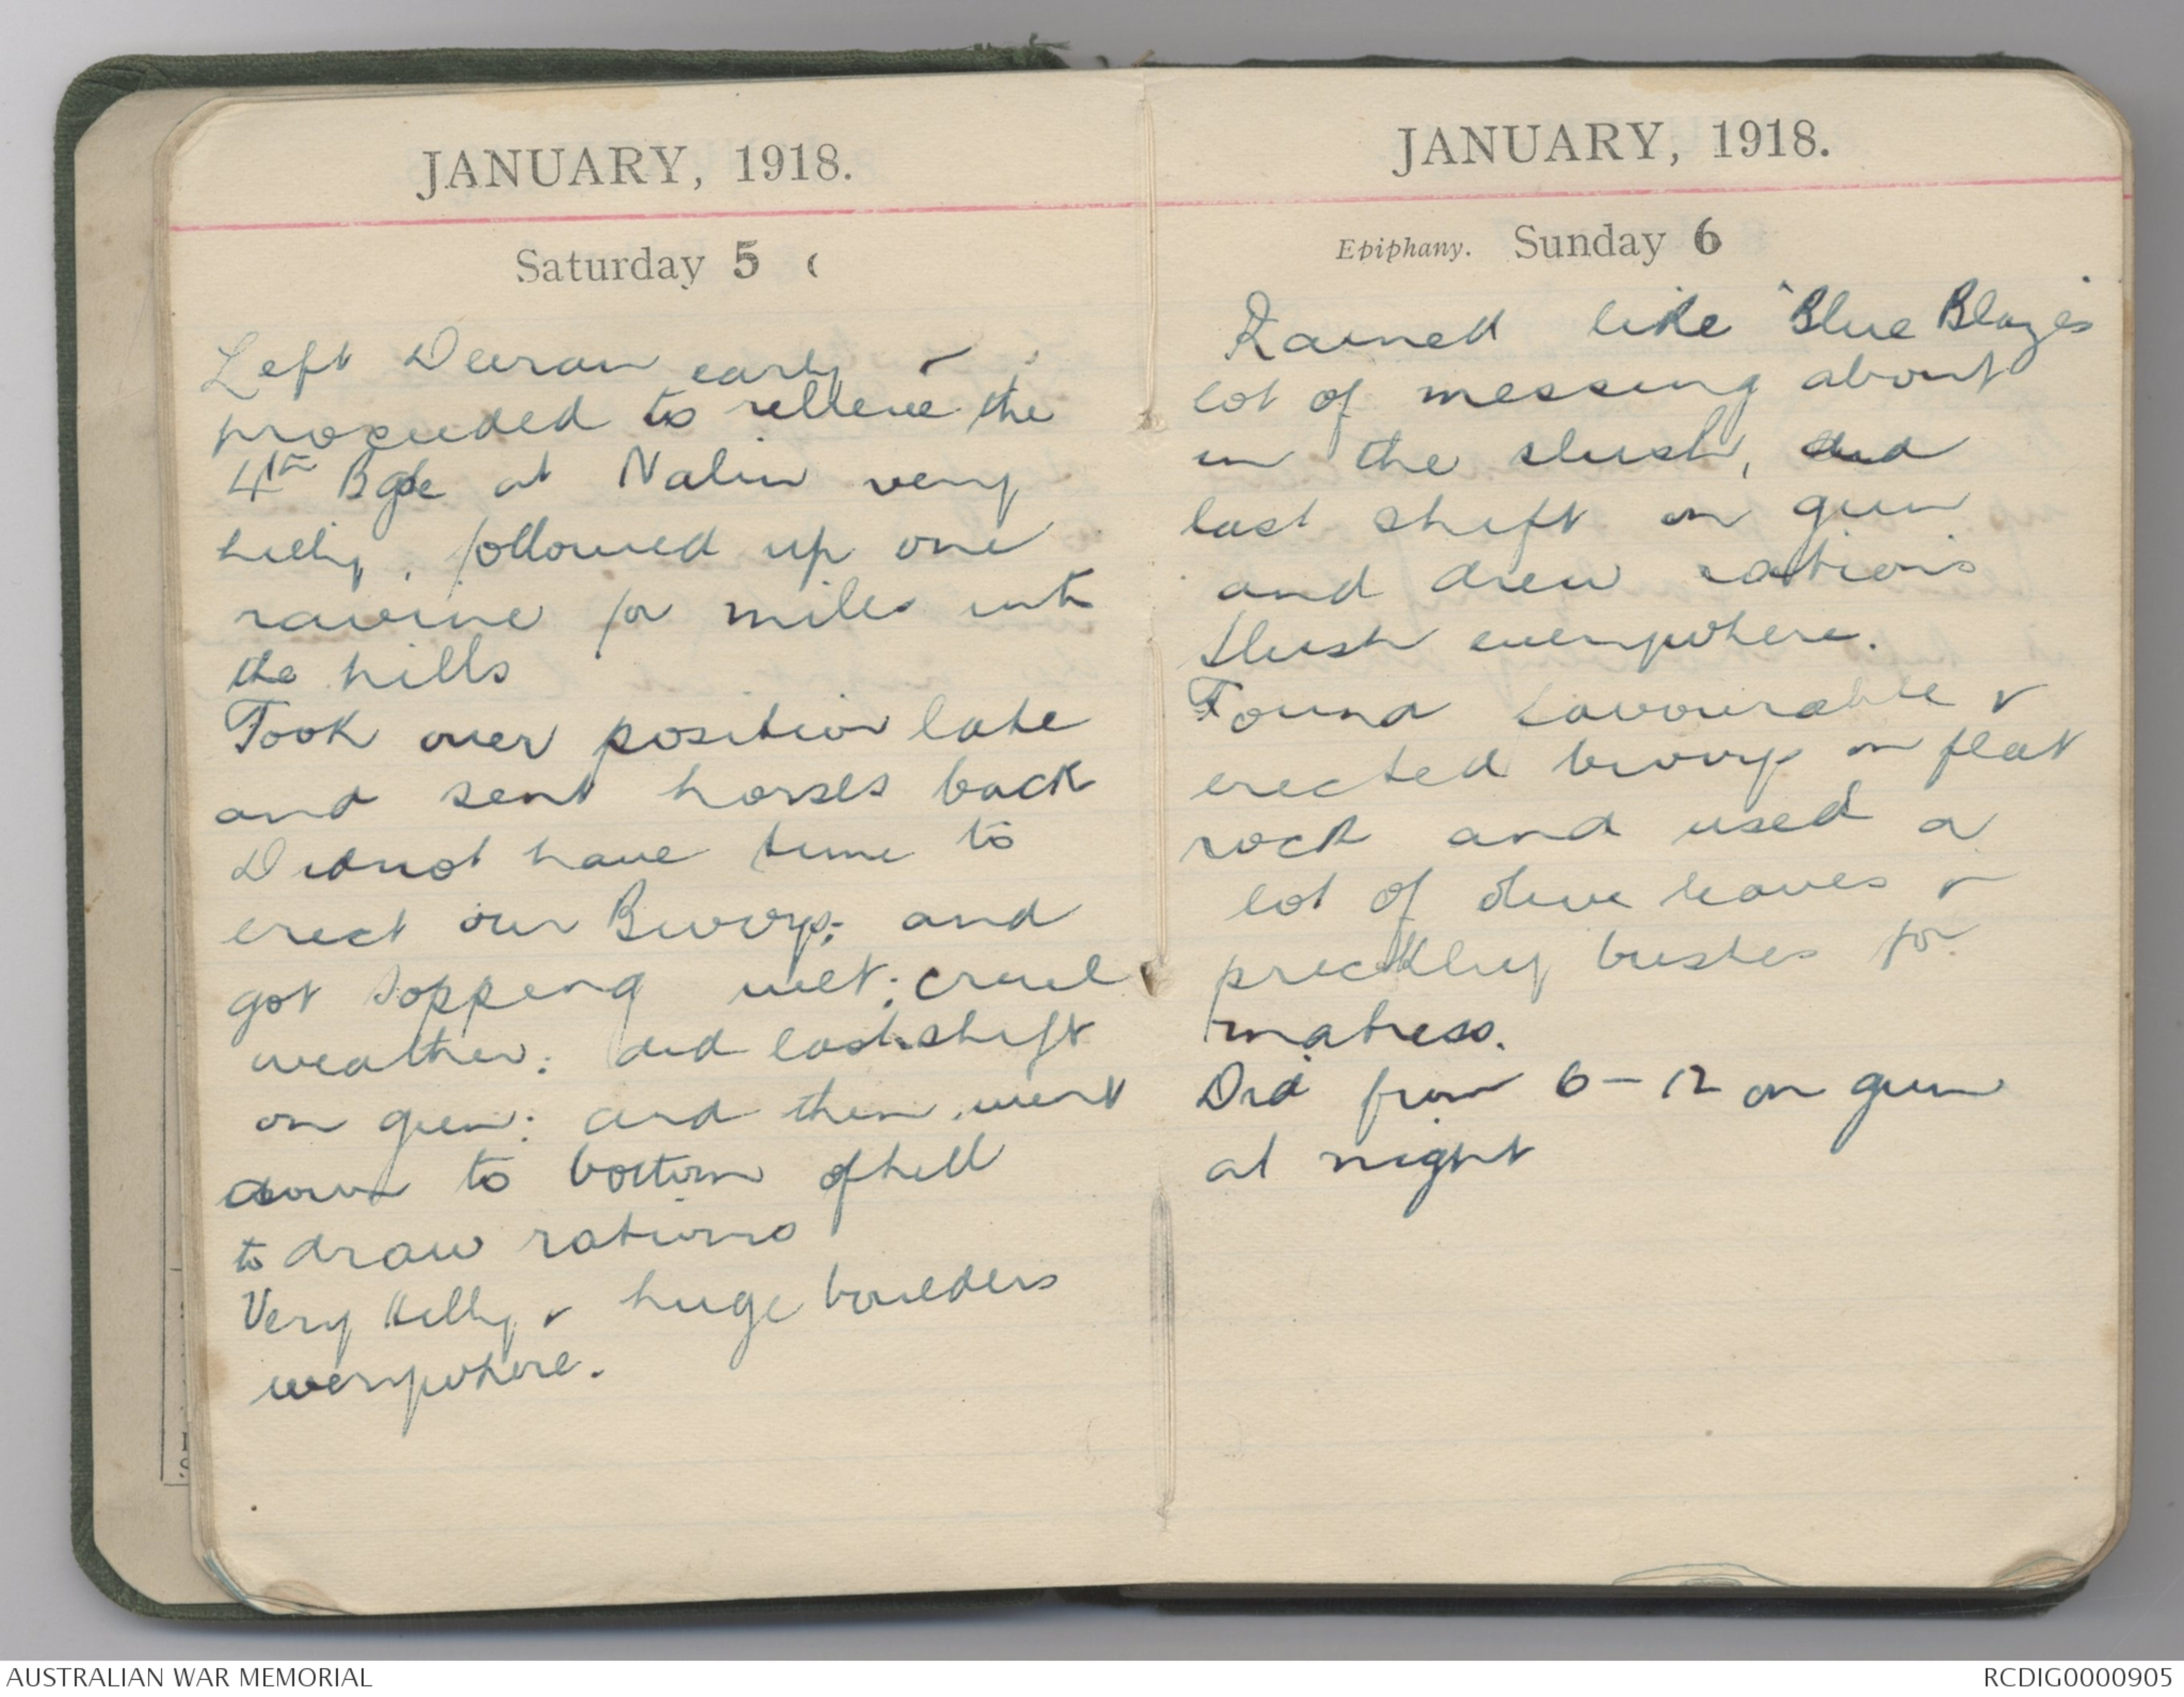 JANUARY, 1918.
Saturday 5
Left Deiran early &
proceeded to relieve the
4th Bgde at Nalin very
hilly, followed up one
ravine for miles into
the hills
Took over position late
and sent horses back
Did not have time to
erect our Bivvys; and
got sopping wet; cruel
weather; did last shift
on gun; and then went
down to bottom of hill
to draw rations
Very Hilly & huge boulders
everywhere.
JANUARY, 1918.
Epiphany. Sunday 6
Rained like "Blue Blazes
lot of messing about
in the slush, did
last shift on gun
and drew rations
Slush everywhere.
Found favourable &
erected bivvy on flat
rock and used a
lot of olive leaves &
prickley bushes for
matress.
Did from 6-12 on gun
at night
AUSTRALIAN WAR MEMORIAL
RCDIG0000905